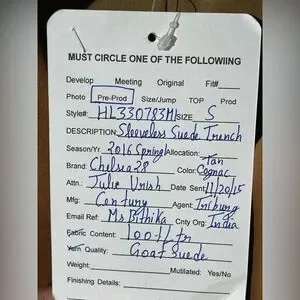 MUST CIRCLE ONE OF THE FOLLOWIING
Develop Meeting Original Fit#
Photo Pre-Prod Size/Jump TOP Prod
Style# HL330783M SIZE S
DESCRIPTION Sleeveless Suede Trench
Season/Yr. 2016 Spring Allocation:
Brand: Chelsea28 Color: Tan Cognac
Attn.: Julie Date Sent: 11/20/15
Mfg: Century Agent: Triburg
Email Ref: Ms Bithika Cnty Org: India
Fabric Content: 100%
Yarn Quality: Goat Suede
Weight: Mutilated: Yes/No
Finishing Details: